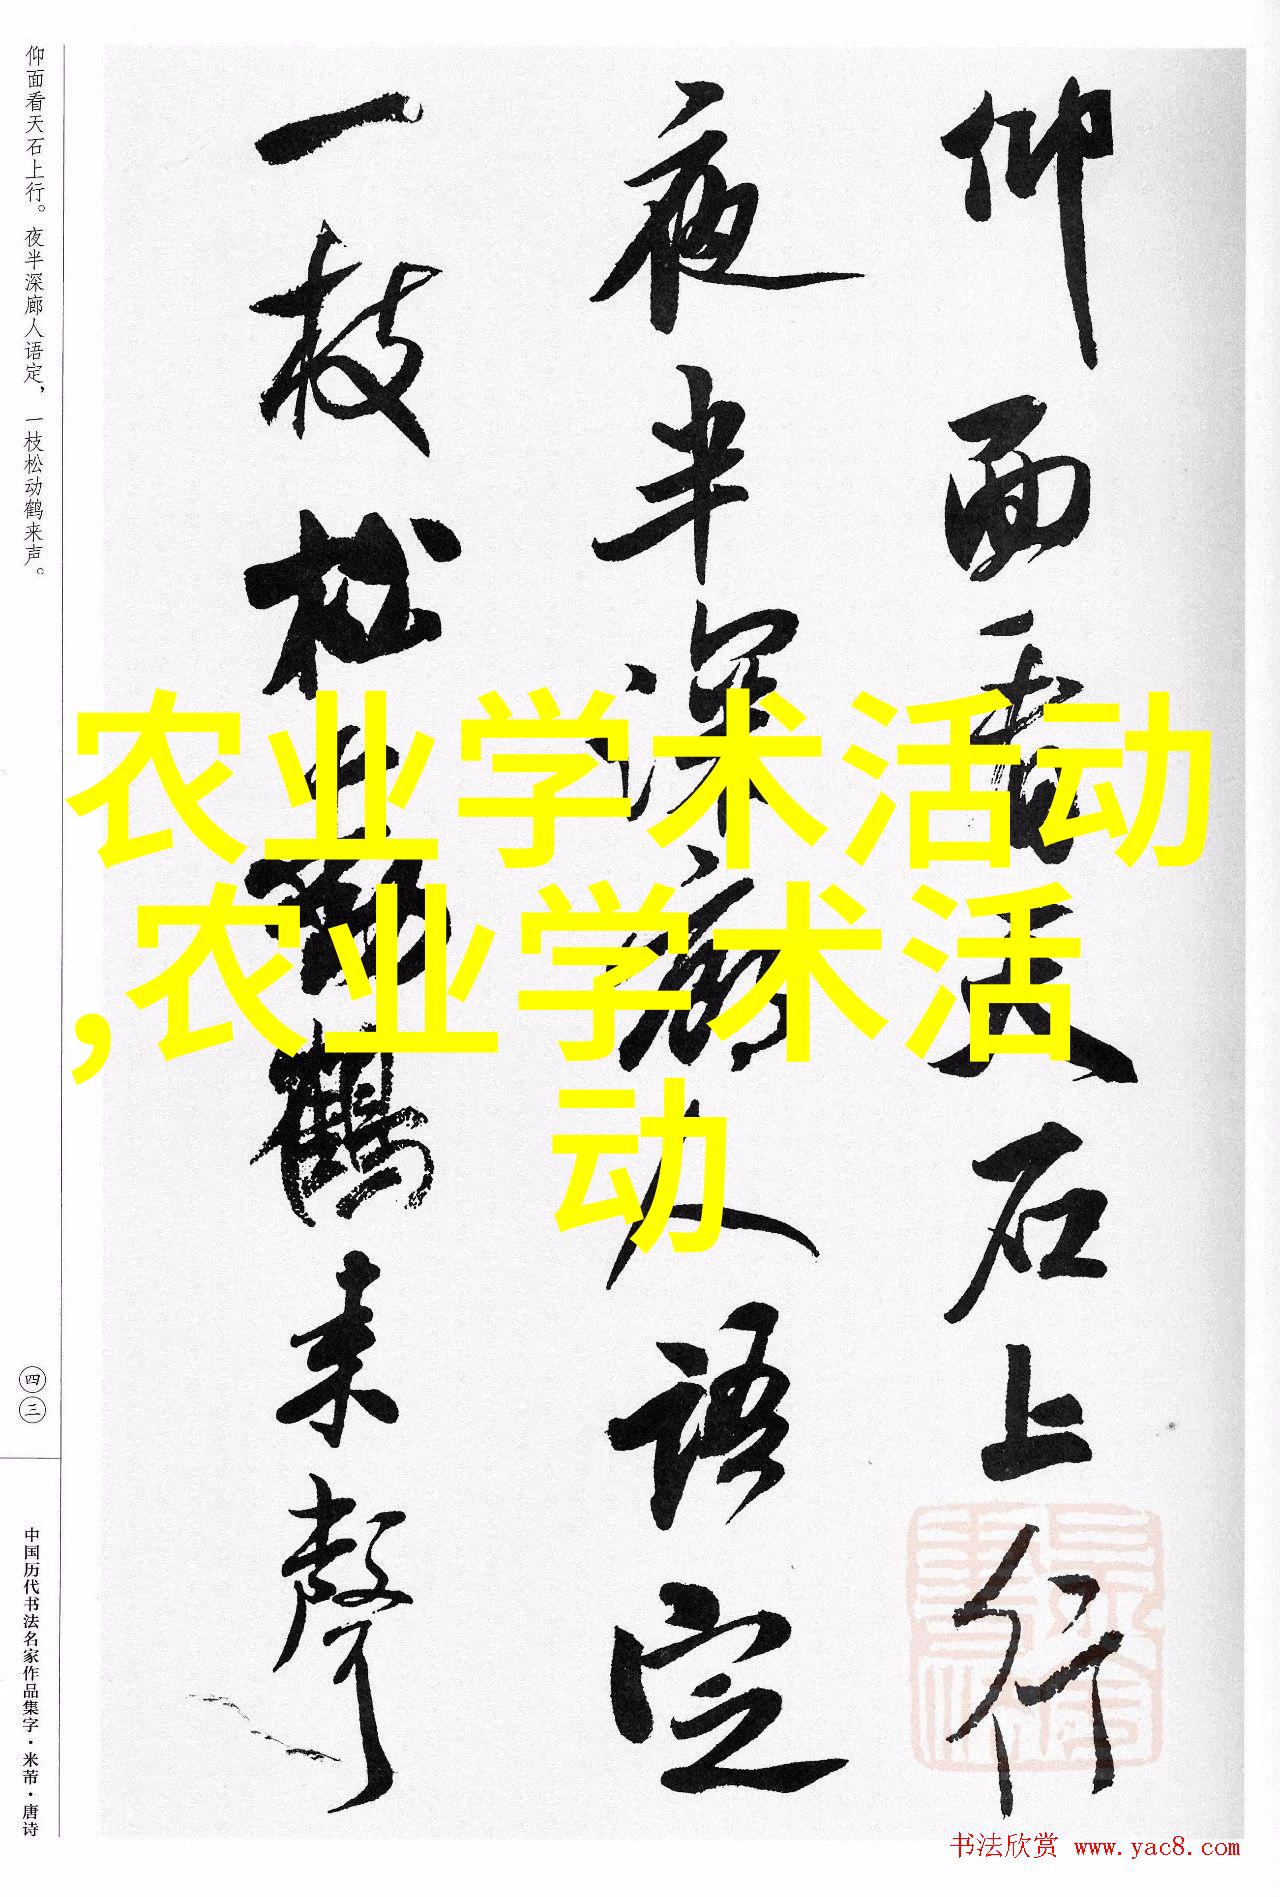 仰面看天石上行
夜半深廊人语定
一枝松动鹤来声
仰面看天石上行。夜半深廊人语定，一枝松动鹤来声。
四三
中国历代书法名家作品集字·米芾·唐诗
农业学术活动
,农业学术活
动
书法欣赏 www.yac8.com